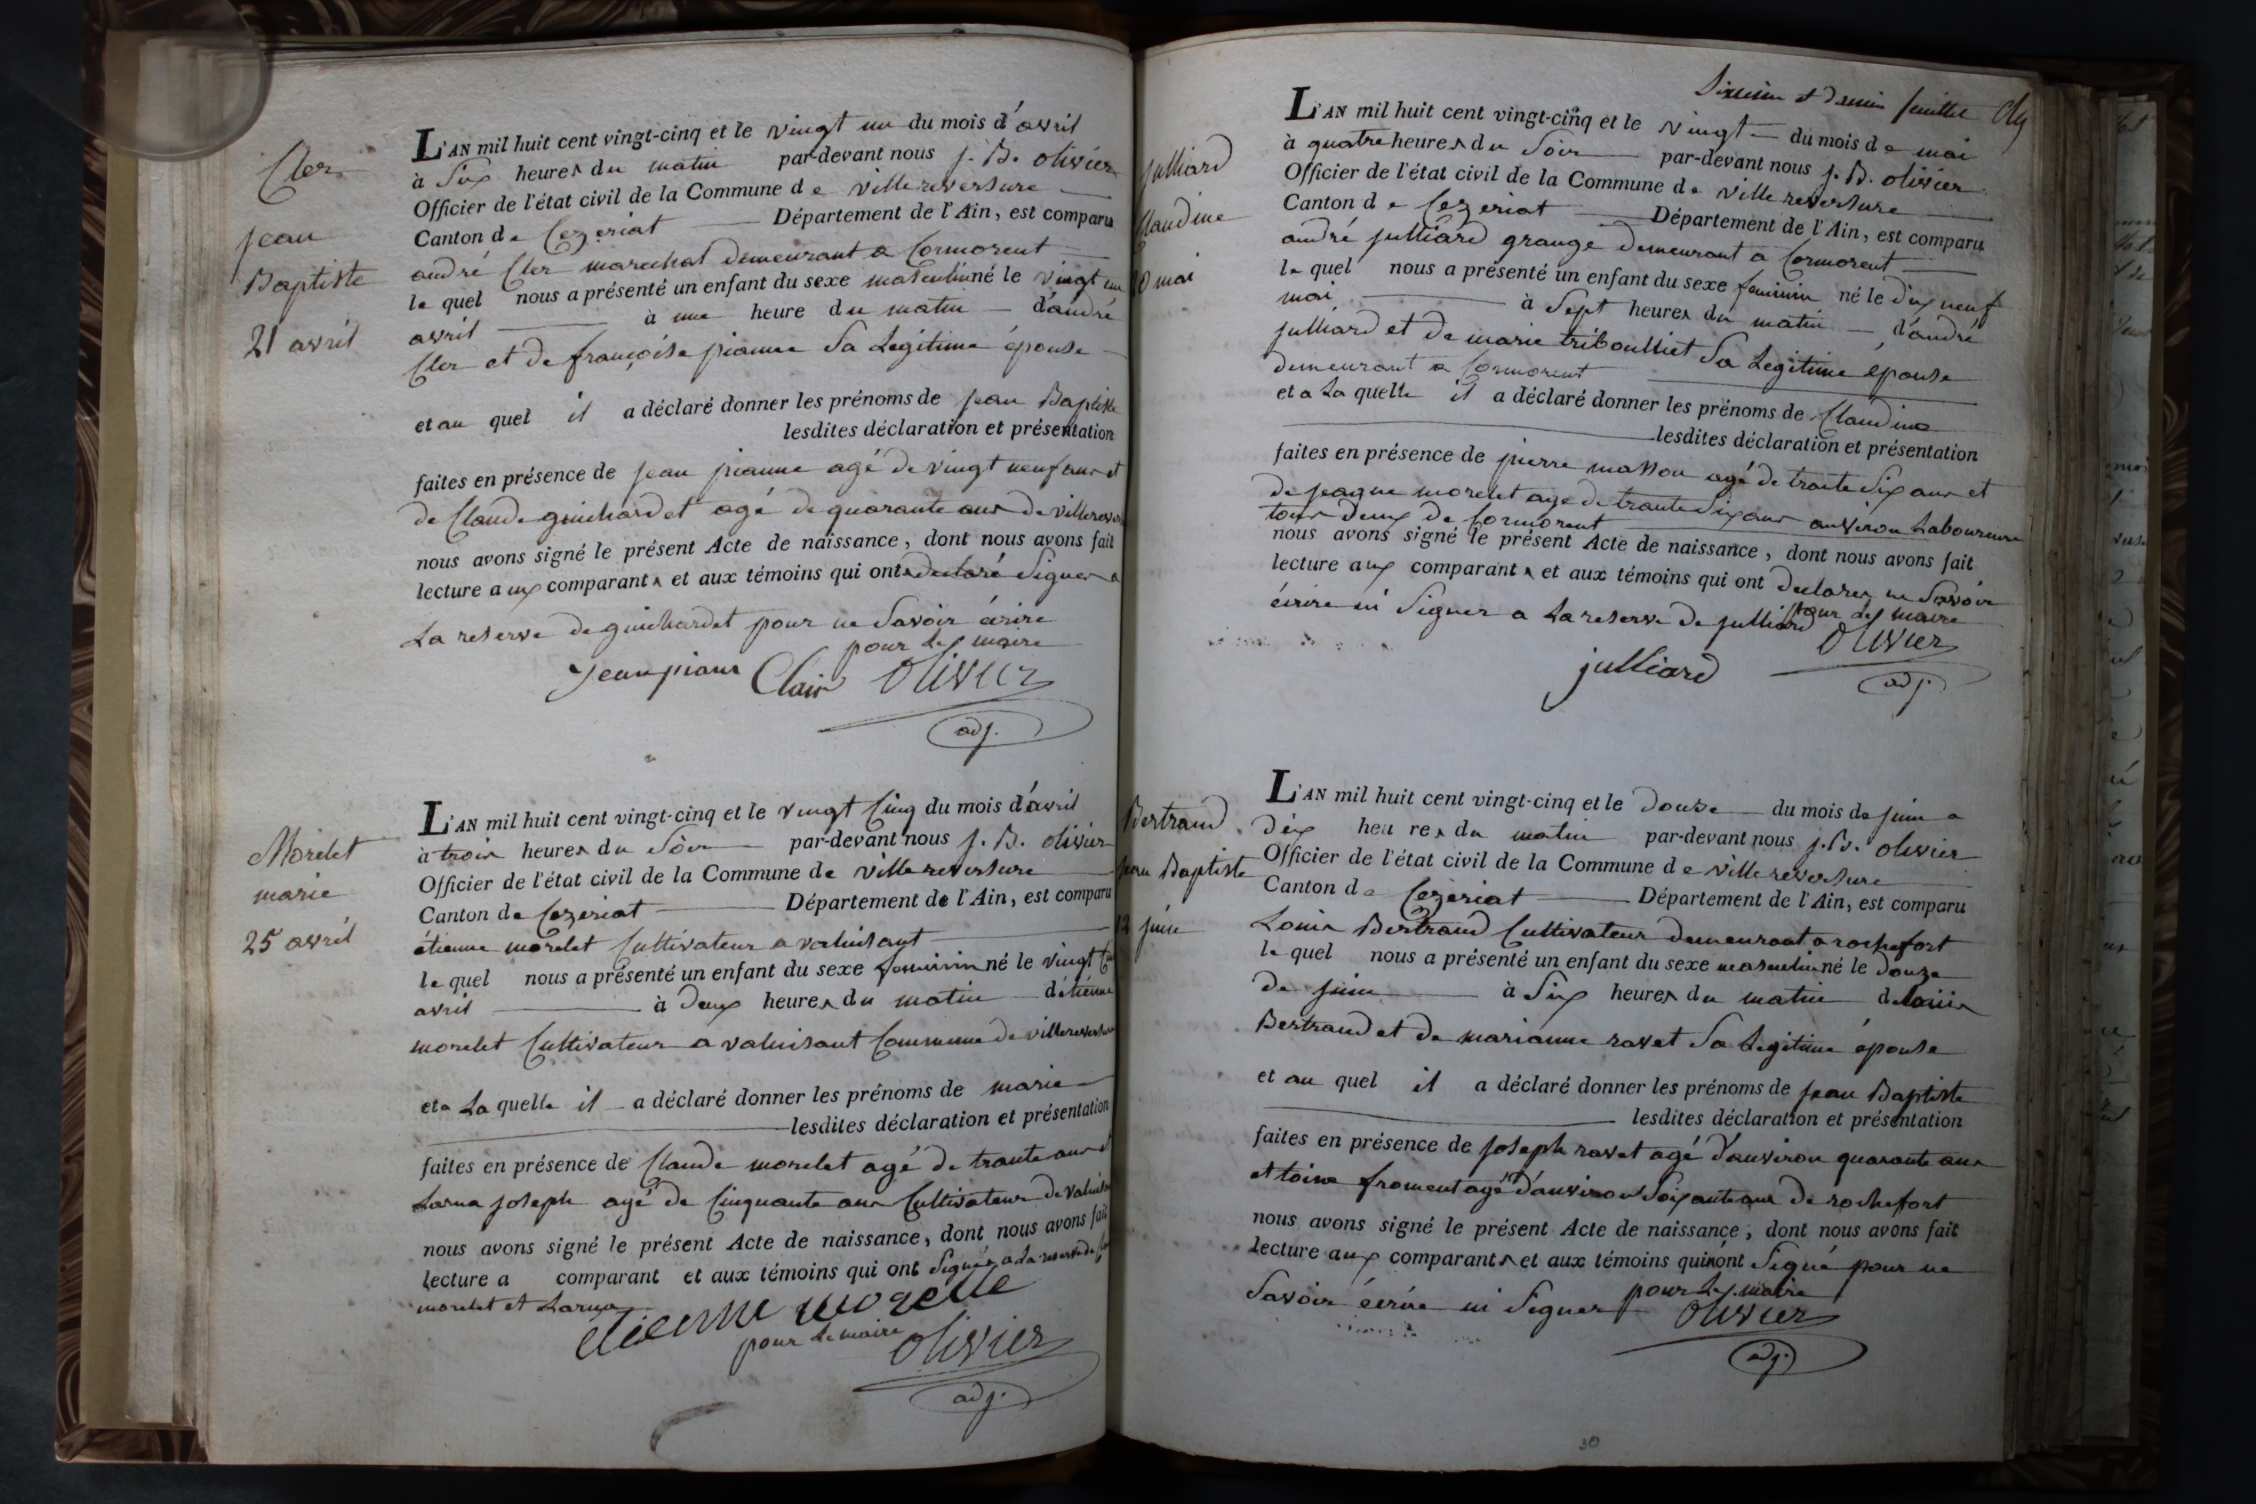 Cler
jean
Baptiste
21 avril
L'AN mil huit cent vingt-cinq et le vingt un du mois d'avril
à Six heures du matin par-devant nous j. B. olivier
Officier de l'état civil de la Commune de villereversure
Canton de Cezeriat Département de l'Ain, est comparu
andré Cler marechal demeurant a Cormorent
le quel nous a présenté un enfant du sexe masculin né le vingt un
avril à une heure du matin d'andré
Cler et de françoise pianne Sa Legitime épouse
et au quel il a déclaré donner les prénoms de jean Baptiste
lesdites déclaration et présentation
faites en présence de jean pianne agé de vingt neuf ans et
de Claude guichardet agé de quarante ans de villerevers
nous avons signé le présent Acte de naissance, dont nous avons fait
lecture aux comparants et aux témoins qui ont declaré Signer a
La reserve de guichardet pour ne Savoir écrire
pour Le maire
jean piane Clair Olivier
adj.
Morelet
marie
25 avril
L'AN mil huit cent vingt-cinq et le vingt Cinq du mois d'avril
à trois heures du Soir par-devant nous j. B. olivier
Officier de l'état civil de la Commune de villereversure
Canton de Cezeriat Département de l'Ain, est comparu
étienne morelet Cultivateur a valuisant
le quel nous a présenté un enfant du sexe feminin né le vingt Cin
avril à deux heures du matin d'étienne
morelet Cultivateur a valuisant Commune de villereversure
et a La quelle il a déclaré donner les prénoms de marie
lesdites déclaration et présentation
faites en présence de Claude morelet agé de trante ans et
Larna joseph agé de Cinquante ans Cultivateurs de valuisa
nous avons signé le présent Acte de naissance, dont nous avons fait
lecture a comparant et aux témoins qui ont Signés a La reserve de
morelet et Larna
étienne morelle
pour Le maire olivier
adj.
Sixieme et dernier feuillet
julliard
Claudine
20 mai
L'AN mil huit cent vingt-cinq et le vingt du mois de mai
à quatre heures du Soir par-devant nous j. B. olivier
Officier de l'état civil de la Commune de villereversure
Canton de Cezeriat Département de l'Ain, est comparu
andré julliard grange demeurant a Cormorent
le quel nous a présenté un enfant du sexe feminin né le dix neuf
mai à Sept heures du matin d'andré
julliard et de marie triboulliet Sa Legitime épouse
demeurant a Cormorent
et a La quelle il a déclaré donner les prénoms de Claudine
lesdites déclaration et présentation
faites en présence de pierre masson agé de trante Six ans et
de jaque morelet age de trante Six ans anviron Laboureurs
tous deux de Cormorent
nous avons signé le présent Acte de naissance, dont nous avons fait
lecture aux comparants et aux témoins qui ont declarer ne Savoir
écrire ni Signer a La reserve de julliard pour Le maire
Olivier
julliard
adj.
Bertrand
jean Baptiste
12 juin
L'AN mil huit cent vingt-cinq et le douze du mois de juin a
dix heures du matin par-devant nous j. B. olivier
Officier de l'état civil de la Commune de villereversure
Canton de Cezeriat Département de l'Ain, est comparu
Louis Bertrand Cultivateur demeurant a rochefort
le quel nous a présenté un enfant du sexe masculin né le douze
de juin à Six heures du matin de Louis
Bertrand et de marianne ravet Sa Legitime épouse
et au quel il a déclaré donner les prénoms de jean Baptiste
lesdites déclaration et présentation
faites en présence de joseph ravet agé d'anviron quarante ans
et toine froment agé d'anviron Soixante ans de rochefort
nous avons signé le présent Acte de naissance, dont nous avons fait
lecture aux comparants et aux témoins qui n'ont Signé pour ne
Savoir écrire ni Signer pour Le maire
Olivier
adj.
30